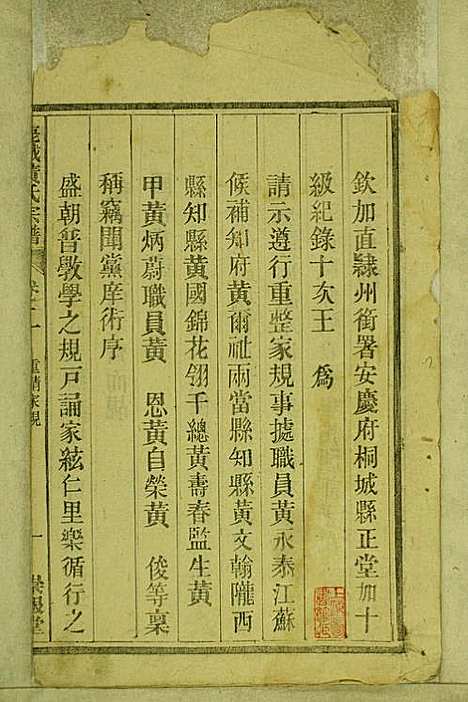 欽加直隸州銜署安慶府桐城縣正堂加十
級紀錄十次王　為
請示遵行重整家規事據職員黃永泰江蘇
候補知府黃爾祉兩當縣知縣黃文翰隴西
縣知縣黃國錦花翎千總黃壽春監生黃
甲黃炳蔚職員黃　恩黃自榮黃　俊等稟
稱竊聞黨庠術序
盛朝普敎學之規戸誦家絃仁里樂循行之
黃氏宗譜
重請家規
一